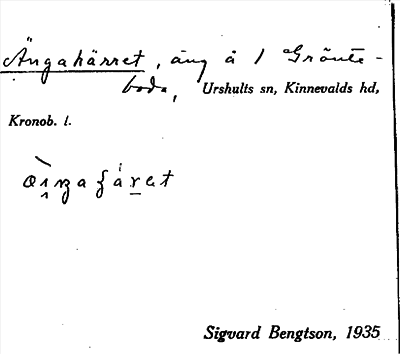 Ängahärret, äng å 1 Grönte-
boda, Urshults sn, Kinnevalds hd,
Kronob. l.
Sigvard Bengtson, 1935